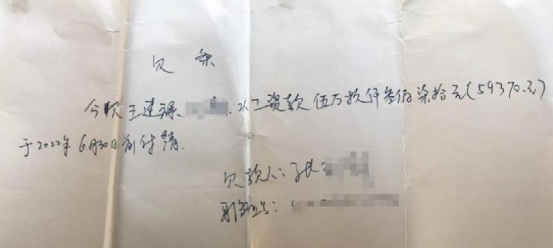 欠条
今欠王建 人工资款伍万玖仟叁佰柒拾元(59370.元)
于2022年6月30日前付清.
欠款人:
身份证号: